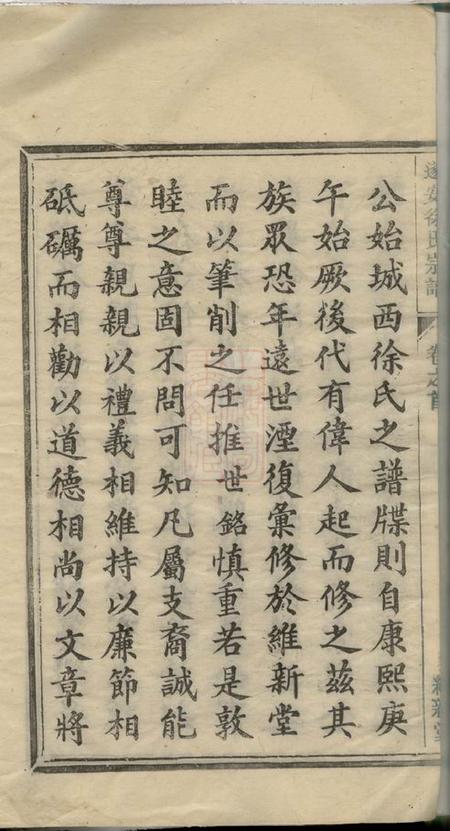 遂安徐氏宗譜
卷之首
公始城西徐氏之譜牒則自康熙庚
午始厥後代有偉人起而修之茲其
族眾恐年遠世湮復彙修於維新堂
而以筆削之任推世銘慎重若是敦
睦之意固不問可知凡屬支裔誠能
尊尊親親以禮義相維持以廉節相
砥礪而相勸以道德相尚以文章將